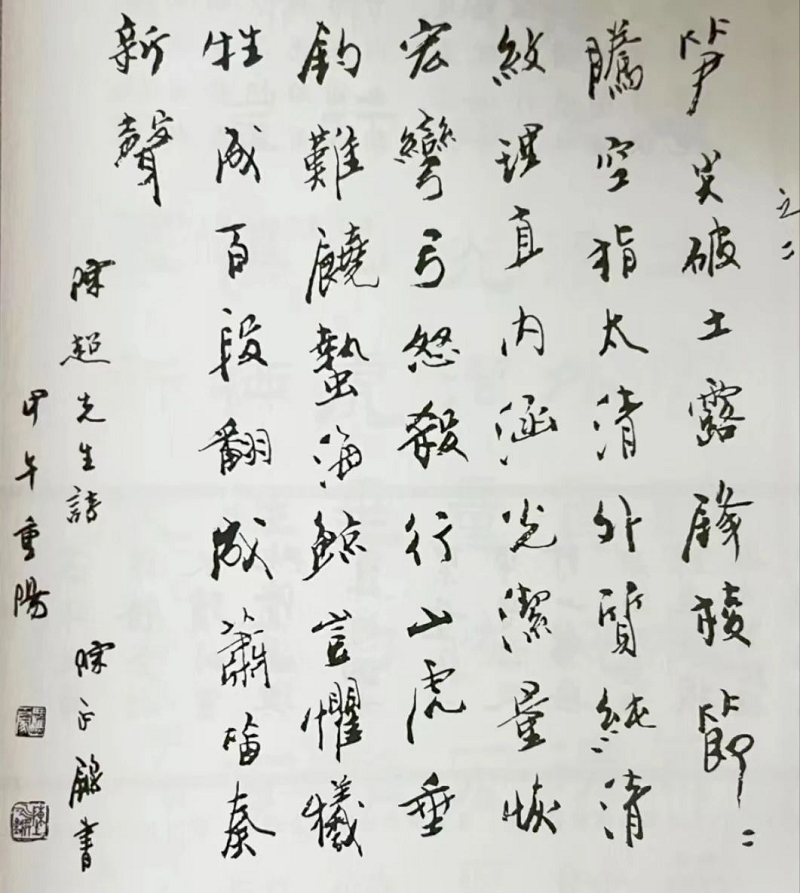 之二
笋尖破土露鋒棱節〻
騰空指太清外質純清
紋理直内涵光潔量恢
宏彎弓怒殺行山虎垂
釣難饒蟄海鯨豈懼犧
牲成百段翻成簫奏
新聲
陳超先生詩 陳正書
甲午重陽